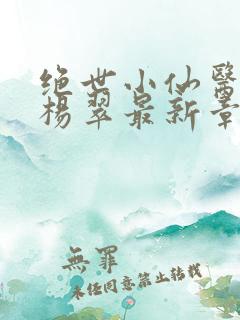 绝世小仙醫
杨翠最新章
無罪
未经同意禁止转载